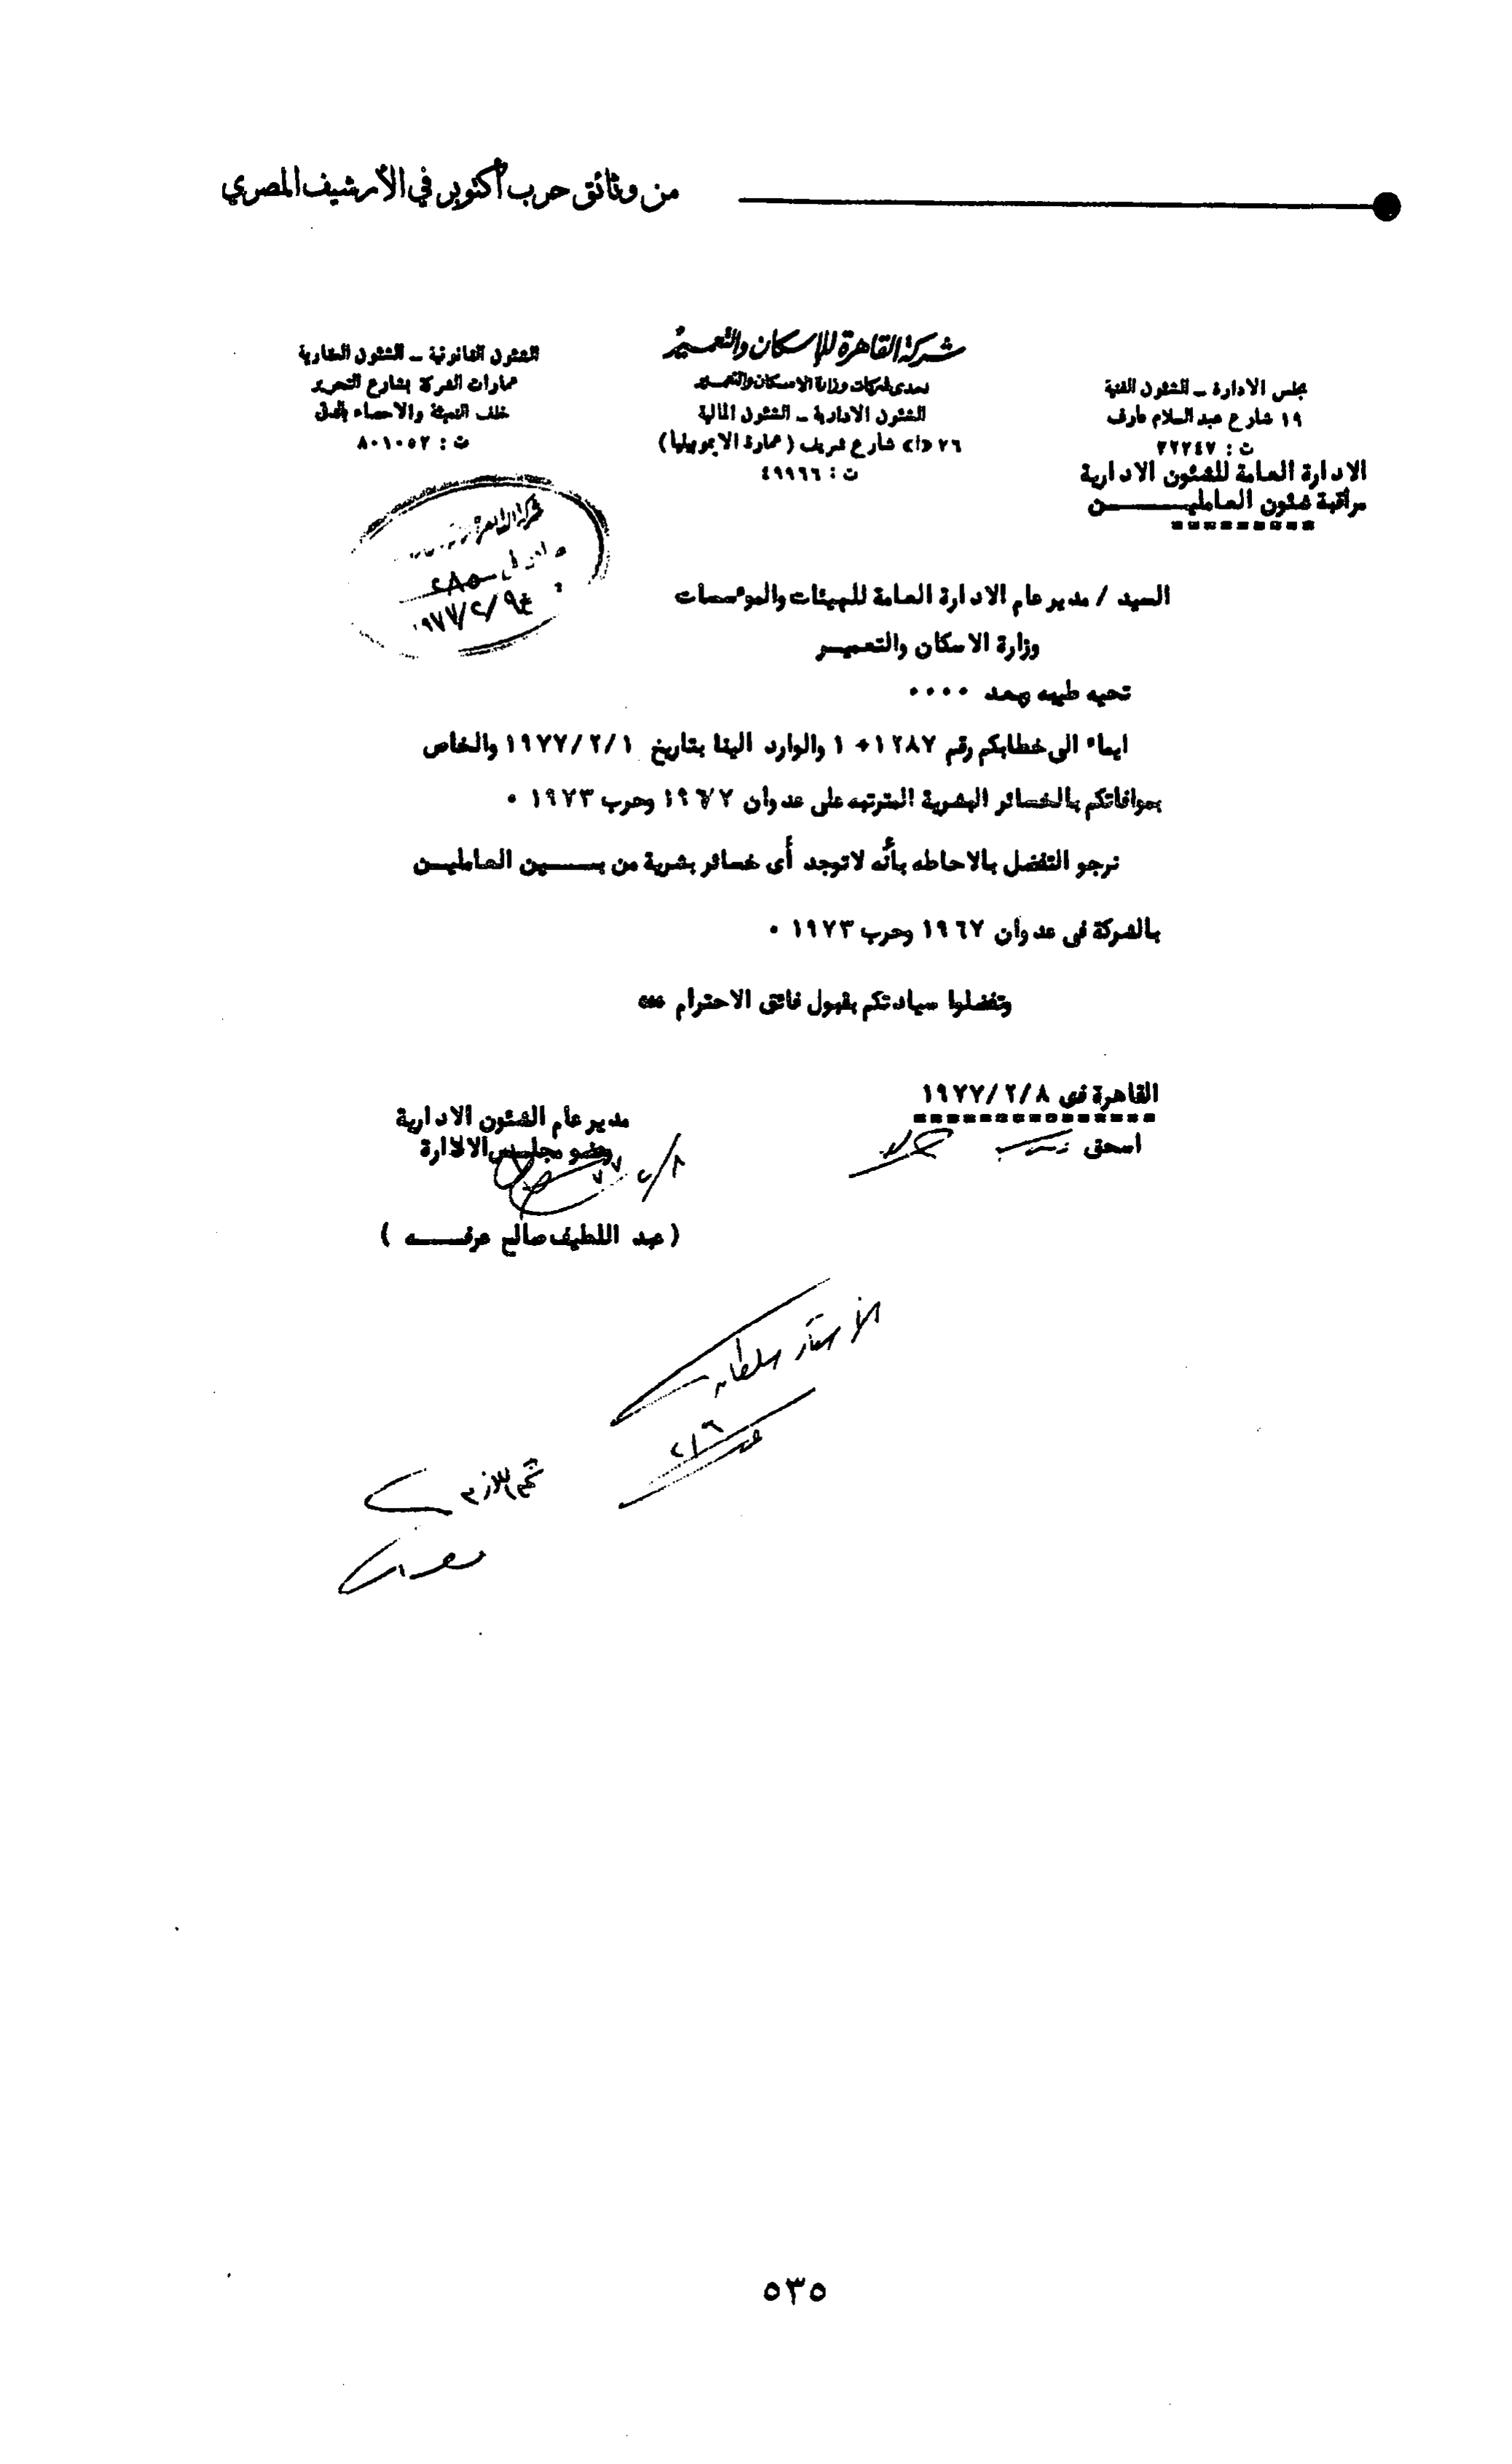 من وثائق حرب أكتوبر في الأرشيف المصري
مجلس الادارة ـ الشئون الفنية
١٩ شارع عبد السلام عارف
ت : ٣٢٢٤٧
الادارة العامة للشئون الادارية
مراقبة شئون العامليـــــــن
شركة القاهرة للإسكان والتعمير
احدى شركات وزارة الاسكان والتعمير
الشئون الادارية ـ الشئون المالية
٢٦ «أ» شارع شريف (عمارة الايموبيليا)
ت : ٤٩٩٦٦
الشئون القانونية ـ الشئون العقارية
عمارات الشركة بشارع التحرير
خلف التعبئة والاحصاء بالدقى
ت : ٨٠١٠٥٢
شركة القاهرة
٢٨٥
١٩٧٧/٢/٩
السيد / مدير عام الادارة العامة للهيئات والمؤسسات
وزارة الاسكان والتعميــر
تحيه طيبه وبعد ٠٠٠٠
ايماء الى خطابكم رقم ١٢٨٧ + ١ والوارد الينا بتاريخ ١٩٧٧/٢/١ والخاص
بموافاتكم بالخسائر البشرية المترتبه على عدوان ١٩٦٧ وحرب ١٩٧٣ ٠
نرجو التفضل بالاحاطه بأنه لاتوجد أى خسائر بشرية من بـــــين العامليـن
بالشركة فى عدوان ١٩٦٧ وحرب ١٩٧٣ ٠
وتفضلوا سيادتكم بقبول فائق الاحترام ،،،
القاهرة فى ١٩٧٧/٢/٨
اسحق
مدير عام الشئون الادارية
وعضو مجلـس الادارة
٢/٨
٧٧
( عبد اللطيف صالح عرفـــــه )
الأستاذ سلطان
٢/٩
اللازم
٥٣٥